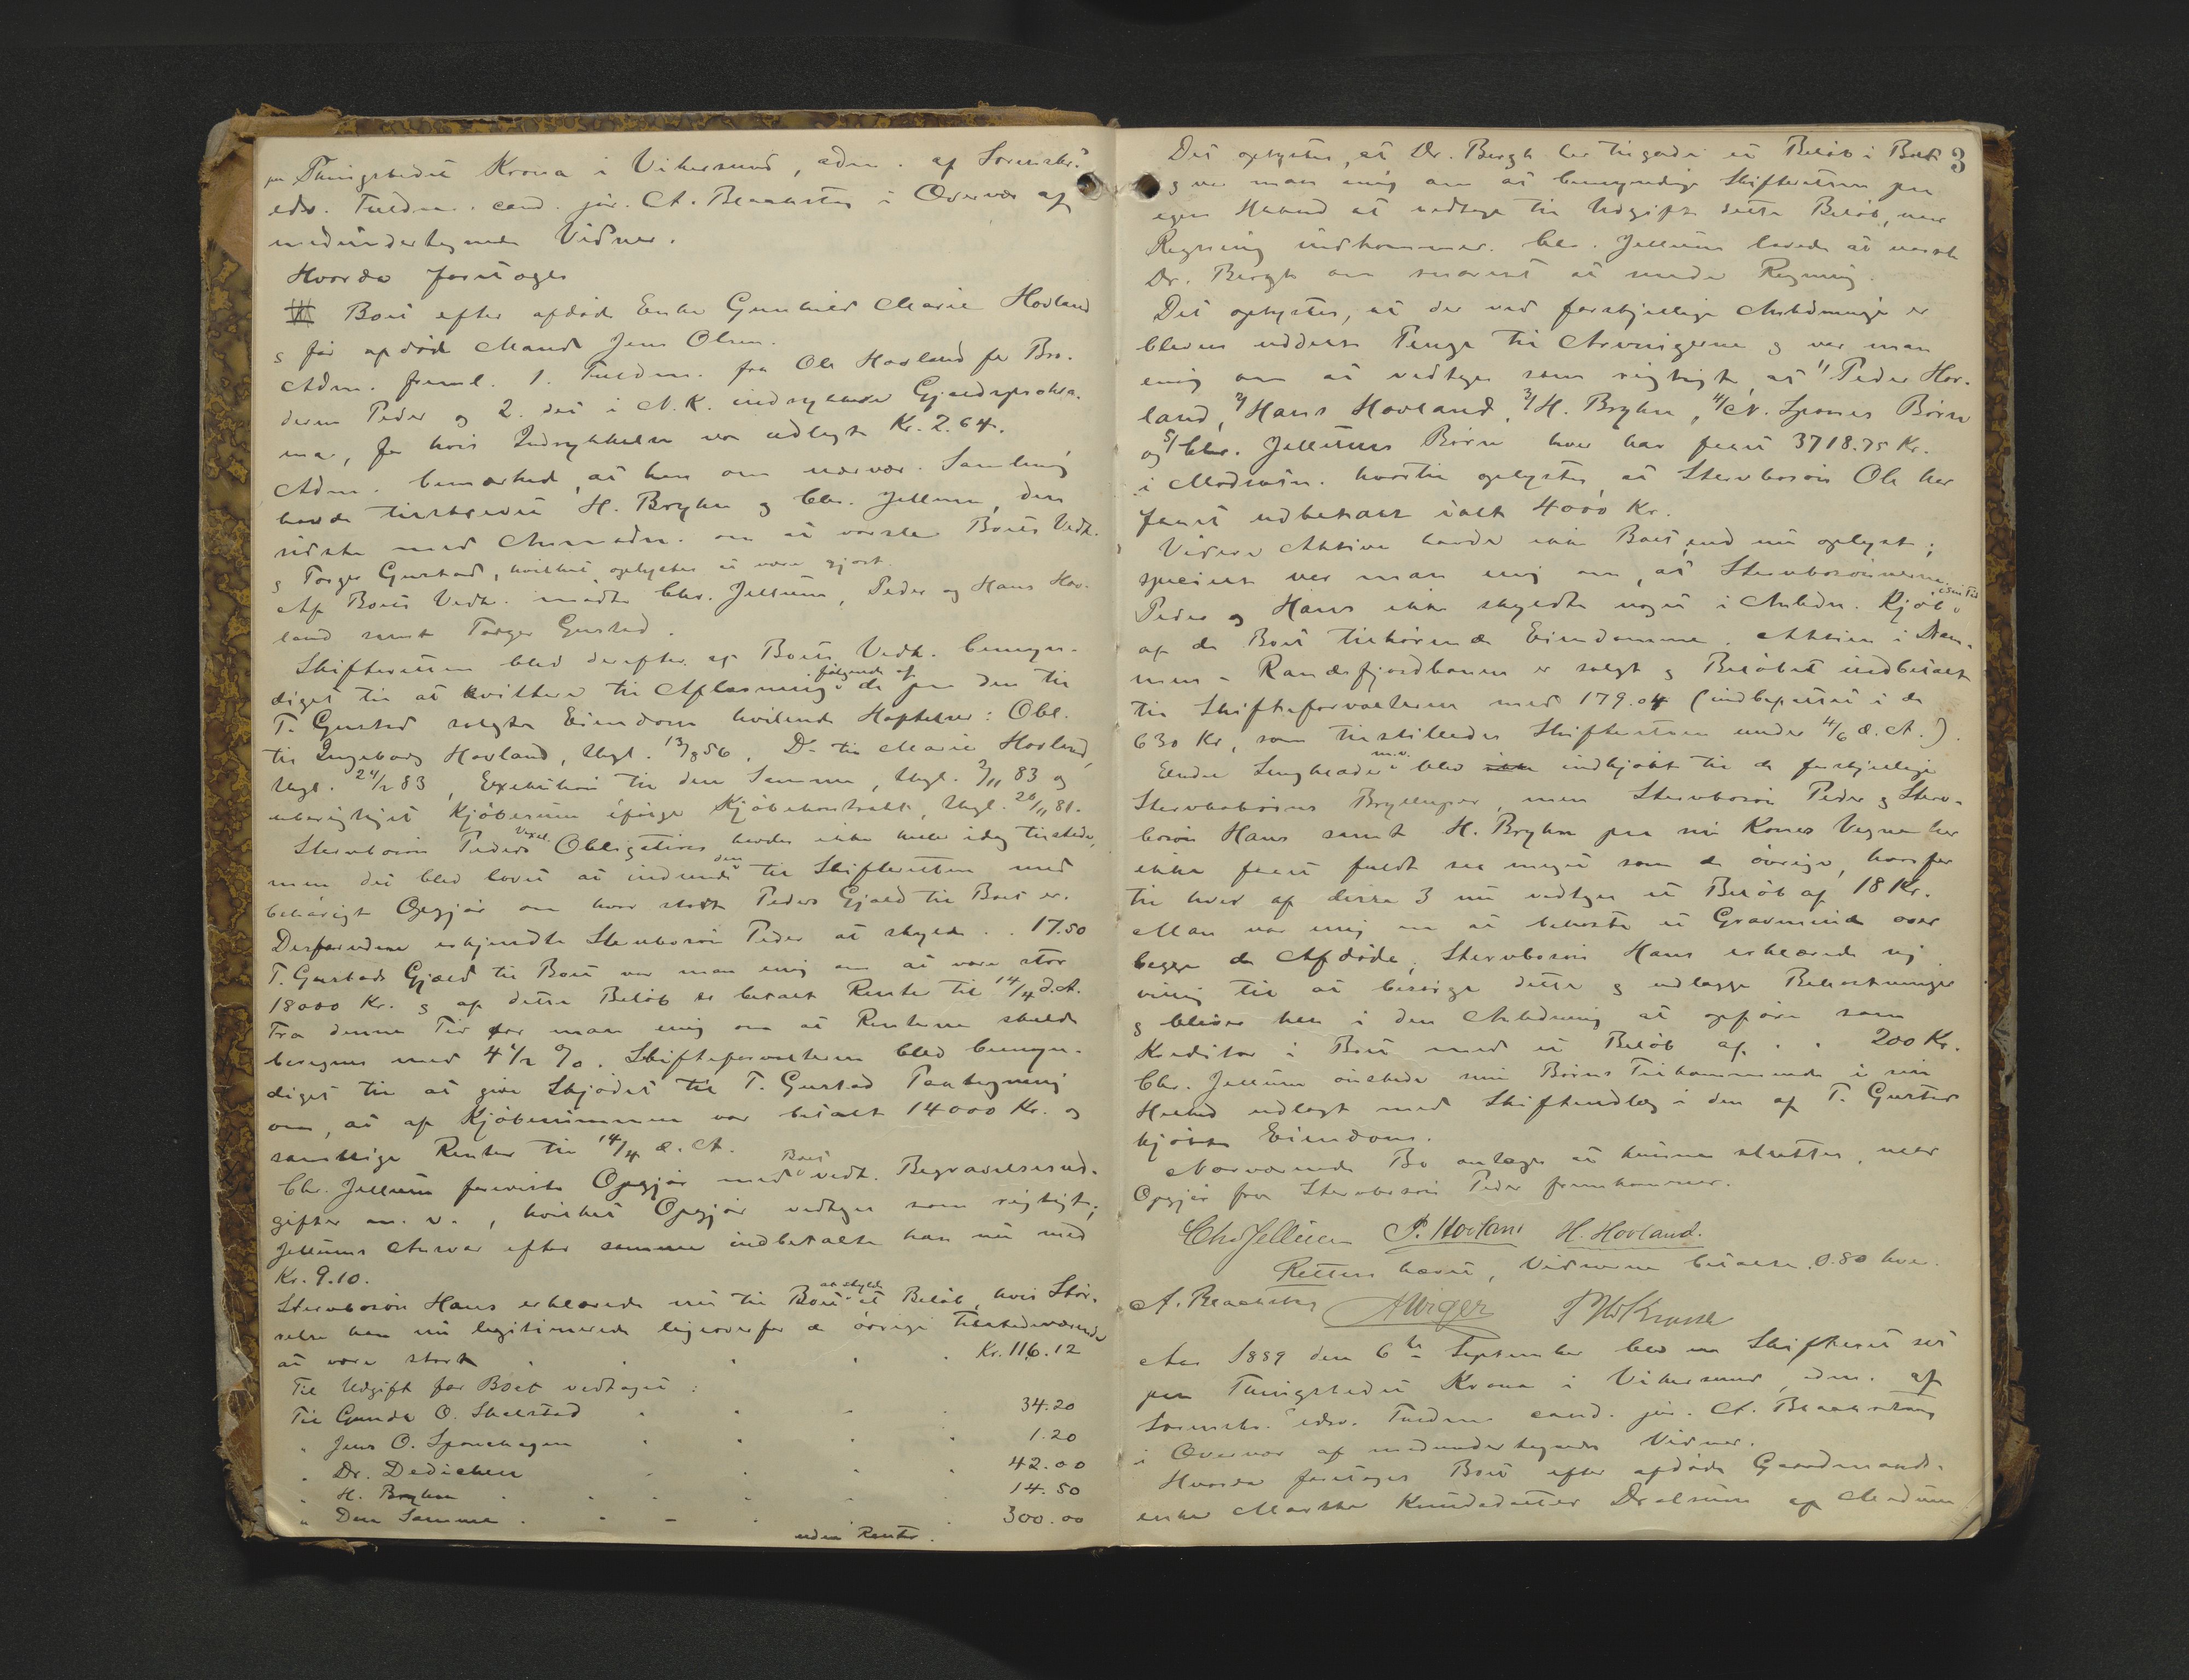 paa Thingstedet Krona i Vikersund, adm. af Sorenskr.s
edsv. Fuldm. cand. jur. A. Blackstad i Overvær af
medundertegnede Vidner.
Hvorda foretoges
Boet efter afdøde Enke Gunhild Marie Hovland
og før afdøde Mand Jens Olsen.
Adm. freml. 1. Fuldm. fra Ole Hovland for Bro-
deren Peder og 2. det i N. K. indrykkede Gjældsprokla-
ma, for hvis Indrykkelse var udlagt Kr. 2.64.
Adm. bemærkede, at han om nærvær. Samling
havde tilskrevet H. Bryhn og Chr. Jellum, den
sidste med Anmodn. om at varsle Boets Vedk.
og Torger Gustad, hvilket oplystes at være gjort.
Af Boets Vedk. mødte Chr. Jellum, Peder og Hans Hov-
land samt Torger Gustad.
Skifteretten blev derefter af Boets Vedk. bemyn-
diget til at kvittere til Aflæsning følgende af de paa den til
T. Gustad solgte Eiendom hvilende Hæftelser: Obl.
til Ingeborg Hovland, thgl. 13/8 56, Do til Marie Hovland,
thgl. 24/2 83, Exekution til den Samme, thgl. 2/11 83 og
uberigtiget Kjøbesum ifølge Kjøbekontrakt, thgl. 20/11 81.
Stervbosøn Peders Vexel Obligation havdes ikke heller idag tilstede,
men det blev lovet at indsende den til Skifteretten med
behørigt Opgjør om hvor stor Peders Gjæld til Boet er.
Desforuden erkjendte Stervbosøn Peder at skylde . . 17.50
T. Gustads Gjæld til Boet var man enig om at være stor
18000 Kr. og af dette Beløb er betalt Renter til 14/4 d.A.
Fra denne Tid var man enig om at Renterne skulde
beregnes med 4 1/2 %. Skifteforvalteren blev bemyn-
diget til at give Skjødet til T. Gustad Paategning
om, at af Kjøbesummen var betalt 14000 Kr. og
samtlige Renter til 14/4 d. A.
Chr. Jellum foreviste Opgjør med Boet vedk. Begravelsesud-
gifter m. v., hvilket Opgjør vedtoges som rigtigt;
Jellums Ansvar efter samme indbetalte han nu med
Kr. 9.10.
Stervbosøn Hans erklærede nu til Boet at skylde et Beløb, hvis Stør-
relse han nu legitimerede ligeoverfor de øvrige Tilstedeværende
at være stort . . . . . Kr. 116.12
Til Udgift for Boet vedtoges:
Til Gunda O. Skalstad . . . . 34.20
" Jens O. Sponehagen . . . . 1.20
" Dr. Dedichen . . . . 42.00
" H. Bryhn . . . . . 14.50
" Den Samme . . . . . 300.00
uden Renter.
3
Det oplystes, at Dr. Bergh har tilgode et Beløb i Boet
og var man enig om at bemyndige Skifteretten paa
egen Haand at vedtage til Udgift dette Beløb, naar
Regning indkommer. Chr. Jellum lovede at varsle
Dr. Bergh om snarest at sende Regning.
Det oplystes, at der ved forskjellige Anledninger er
bleven uddelt Penge til Arvingerne og var man
enig om at vedtage som rigtigt, at 1/ Peder Hov-
land, 2/ Hans Hovland, 3/ H. Bryhn, 4/ N. Spones Børn
og 5/ Chr. Jellums Børn hver har faaet 3718.75 Kr.
i Modsætn. hvortil oplystes, at Stervbosøn Ole har
faaet udbetalt ialt 4000 Kr.
Videre Aktiva havde ikke Boet, end nu oplyst;
specielt var man enig om, at Stervbosønnerne
Peder og Hans ikke skyldte noget i Anledn. Kjøb i sin Tid
af de Boet tilhørende Eiendomme. Aktien i Dram-
men - Randsfjordbanen er solgt og Beløbet indbetalt
til Skifteforvalteren med 179.04 (indbefattet i de
630 Kr, som tilstilledes Skifteretten under 4/6 d. A.).
Endel Sengklæder m.v. blev indkjøbt til de forskjellige
Stervbobørns Bryllupper, men Stervbosøn Peder og Sterv-
bosøn Hans samt H. Bryhn paa sin Kones Vegne har
ikke faaet fuldt saa meget som de øvrige, hvorfor
til hver af disse 3 nu vedtoges et Beløb af 18 Kr.
Man var enig om at bekoste et Gravminde over
begge de Afdøde; Stervbosøn Hans erklærede sig
villig til at besørge dette og udlægge Bekostninger
og bliver han i den Anledning at opføre som
Kreditor i Boet med et Beløb af . . 200 Kr.
Chr. Jellum ønskede sine Børns Tilkommende i sin
Helhed udlagt med Skifteudlæg i den af T. Gustad
kjøbte Eiendom.
Nærværende Bo antages at kunne sluttes, naar
Opgjør fra Stervbosøn Peder fremkommer.
Chr Jellum P. Hovland H. Hovland.
Retten hævet, Vidnerne betalte 0.80 hver.
A. Blackstad
Aar 1889 den 6te September blev en Skifteret sat
paa Thingstedet Krona i Vikersund, adm. af
Sorenskr.s edsv. Fuldm. cand. jur. A. Blackstad
i Overvær af medundertegnede Vidner.
Hvorda foretoges Boet efter afdøde Gaardmands-
enke Marthe Knudsdatter Drolsum af Modum